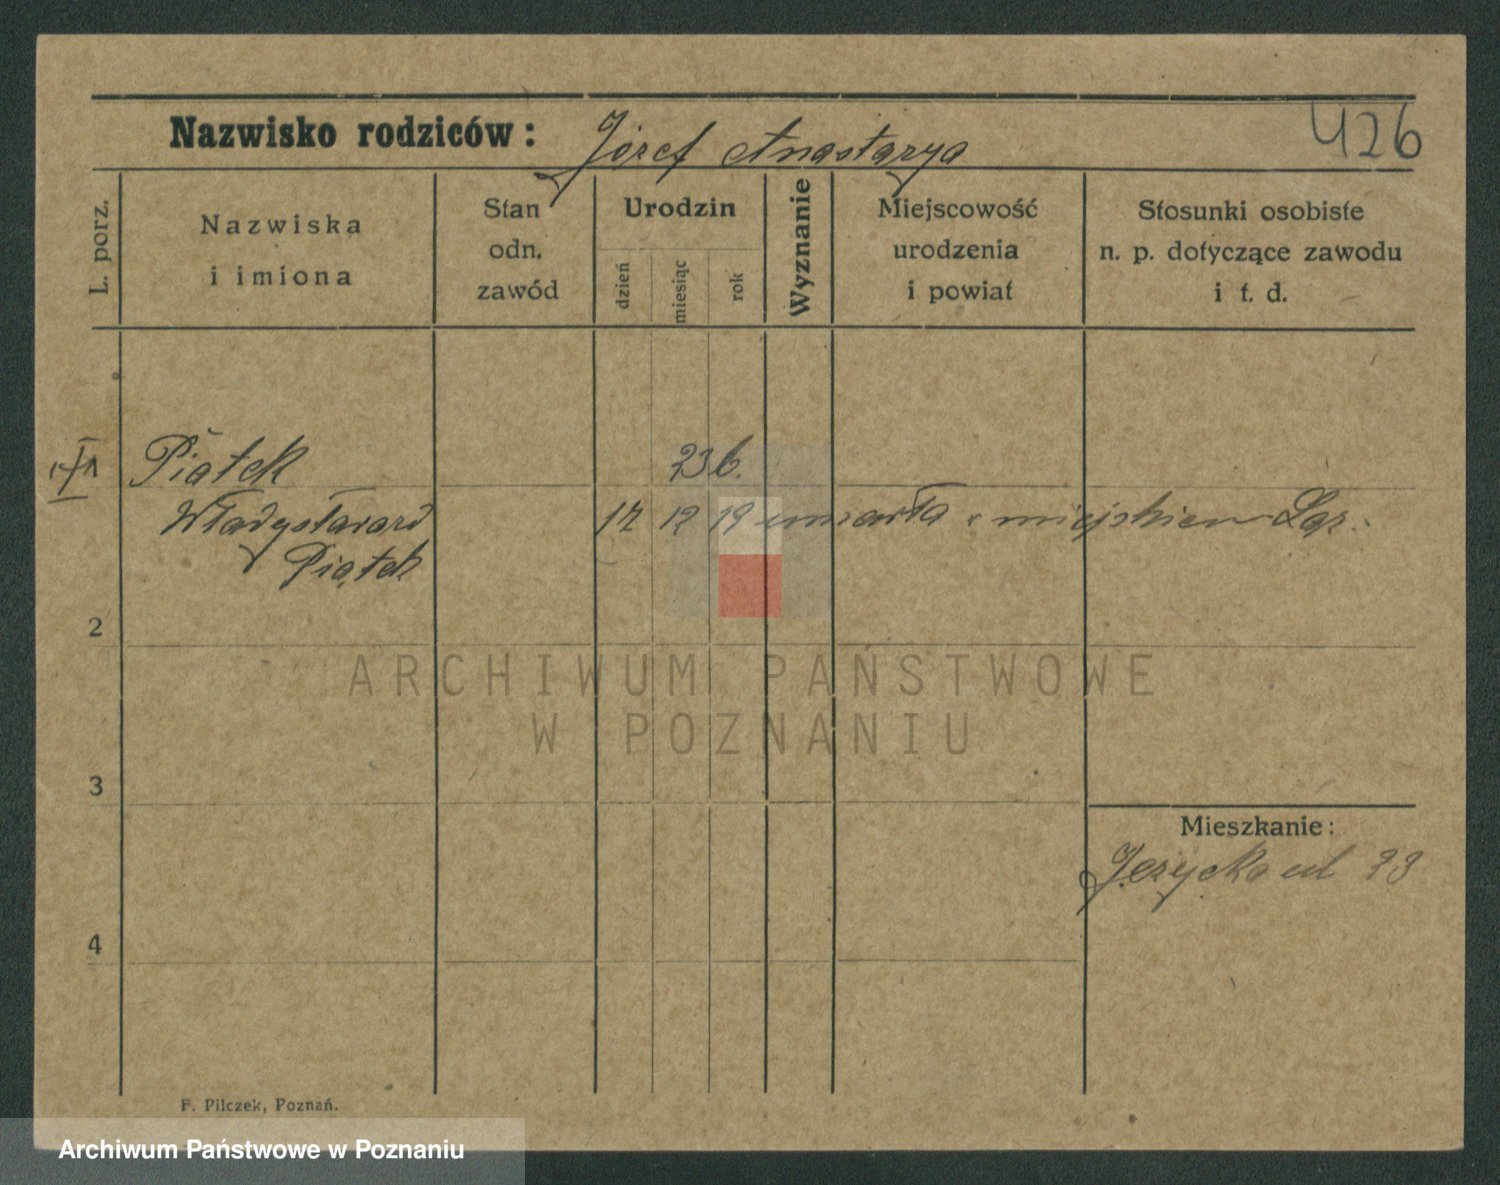 426
Nazwisko rodziców: Józef Anastazya
L. porz.
Nazwiska
i imiona
Stan
odn.
zawód
Urodzin
dzień
miesiąc
rok
Wyznanie
Miejscowość
urodzenia
i powiat
Stosunki osobiste
n. p. dotyczące zawodu
i t. d.
1 Piątek 236.
Władysława
17 12 19 umarła w miejskiem Laz.
Piątek
2
3
4
Mieszkanie:
Jerzycka ul
F. Pilczek, Poznań.
ARCHIWUM PAŃSTWOWE
W POZNANIU
Archiwum Państwowe w Poznaniu